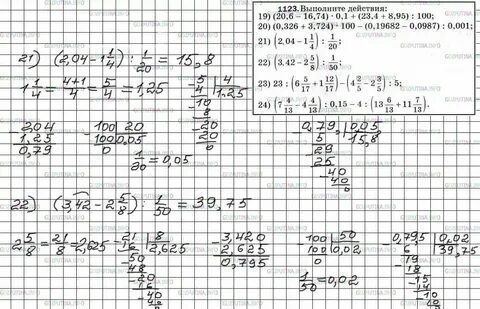 1123. Выполните действия:
19) (20,6 – 16,74) · 0,1 + (23,4 + 8,95) : 100;
20) (0,326 + 3,724) · 100 – (0,19682 – 0,0987) : 0,001;
21) (2,04 – 1 1/4) : 1/20;
22) (3,42 – 2 5/8) : 1/50;
23) 23 : (6 5/17 + 1 12/17) – (4 3/5 – 2 3/5) : 5;
24) (7 4/13 – 4 4/13) : 0,15 – 4 : (13 6/13 + 11 7/13).
21) (2,04 – 1 1/4) : 1/20 = 15,8
1 1/4 = 4+1/4 = 5/4 = 1,25
5 4
4 1,25
10
8
20
20
0
2,04
1,25
0,79
100 20
100 0,05
0
1/20 = 0,05
0,79 0,05
5 15,8
29
25
40
40
0
22) (3,42 – 2 5/8) : 1/50 = 39,75
2 5/8 = 21/8 = 2,625
21 8
16 2,625
50
48
20
16
40
40
0
3,420
2,625
0,795
100 50
100 0,02
0
1/50 = 0,02
0,795 0,02
6 39,75
19
18
15
14
10